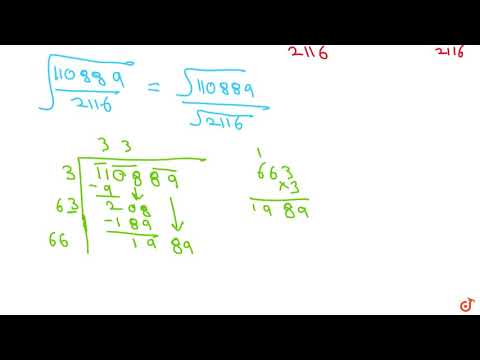 2116 2116
√110889/2116 = √110889/√2116
3 3
3 110889
-9
63 208
-189
66 1989
1
663
×3
1989